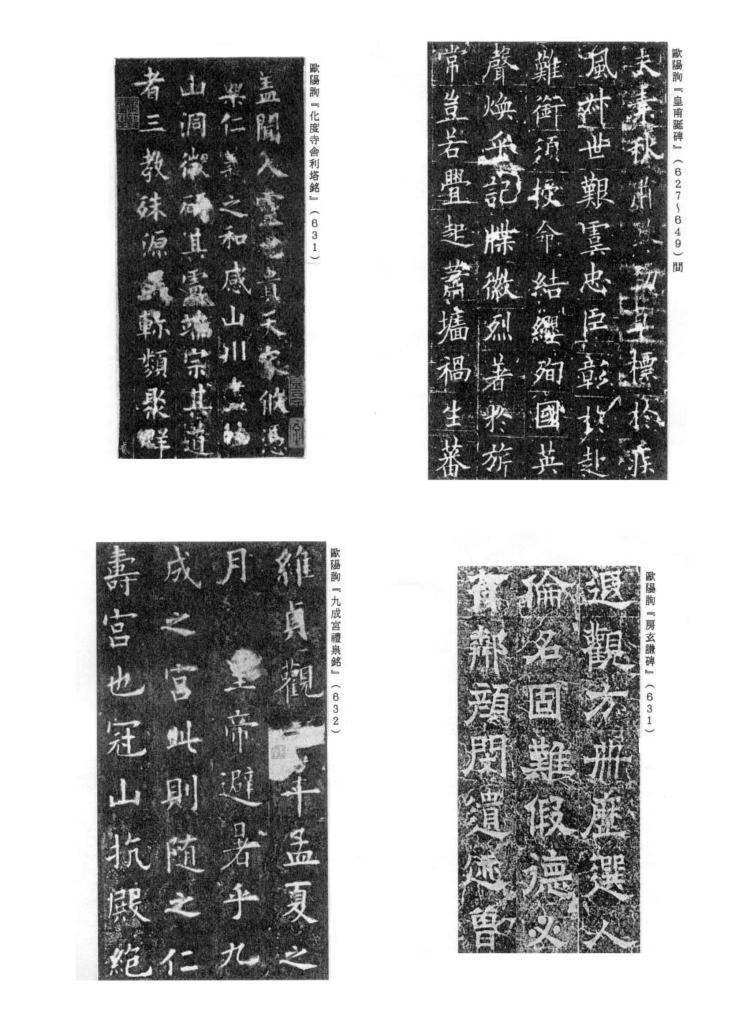 歐陽詢『皇甫誕碑』（627～649）間
夫素秋肅勁草標於疾
風叶世艱虞忠臣彰於赴
難銜須授命結纓殉國英
聲煥乎記牒徽烈著於旂
常豈若舋起蕭墻禍生蕃
歐陽詢『化度寺舍利塔銘』（631）
盖聞人靈也貴天象攸憑
稟仁義之和感山川
山洞微研其慮端宗其道
者三教殊源異軫類聚群
歐陽詢『房玄謙碑』（631）
遐觀方冊歷選人
倫名固難假德必
有鄰顔閔遺迹曾
歐陽詢『九成宮禮泉銘』（632）
維貞觀年孟夏之
月　皇帝避暑乎九
成之宮此則隨之仁
壽宮也冠山抗殿絕